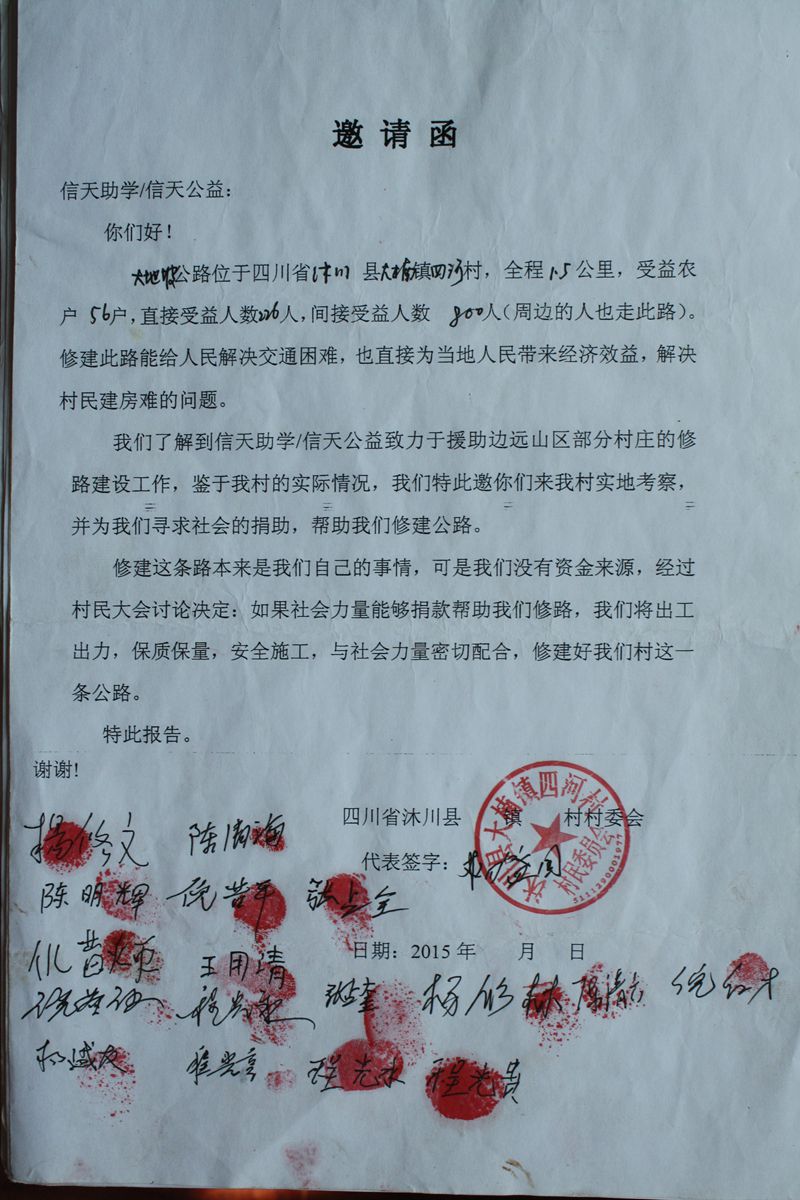 邀请函
信天助学/信天公益：
你们好！
大地坡公路位于四川省沐川县大楠镇四河村，全程1.5公里，受益农
户56户，直接受益人数226人，间接受益人数 800人（周边的人也走此路）。
修建此路能给人民解决交通困难，也直接为当地人民带来经济效益，解决
村民建房难的问题。
我们了解到信天助学/信天公益致力于援助边远山区部分村庄的修
路建设工作，鉴于我村的实际情况，我们特此邀你们来我村实地考察，
并为我们寻求社会的捐助，帮助我们修建公路。
修建这条路本来是我们自己的事情，可是我们没有资金来源，经过
村民大会讨论决定：如果社会力量能够捐款帮助我们修路，我们将出工
出力，保质保量，安全施工，与社会力量密切配合，修建好我们村这一
条公路。
特此报告。
谢谢！
四川省沐川县 镇 村村委会
县大楠镇四河村
村民委员会
5111290001977
代表签字：
杨修文
陈明辉 张上全
日期：2015年 月 日
王用清
程光水 程光贵